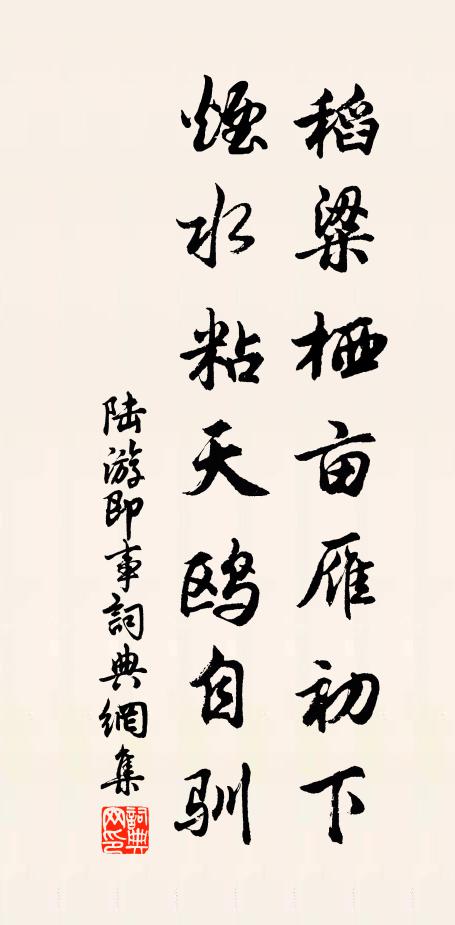 稻粱栖亩雁初下
烟水粘天鸥自驯
陆游即事詞典網集
詞典网印